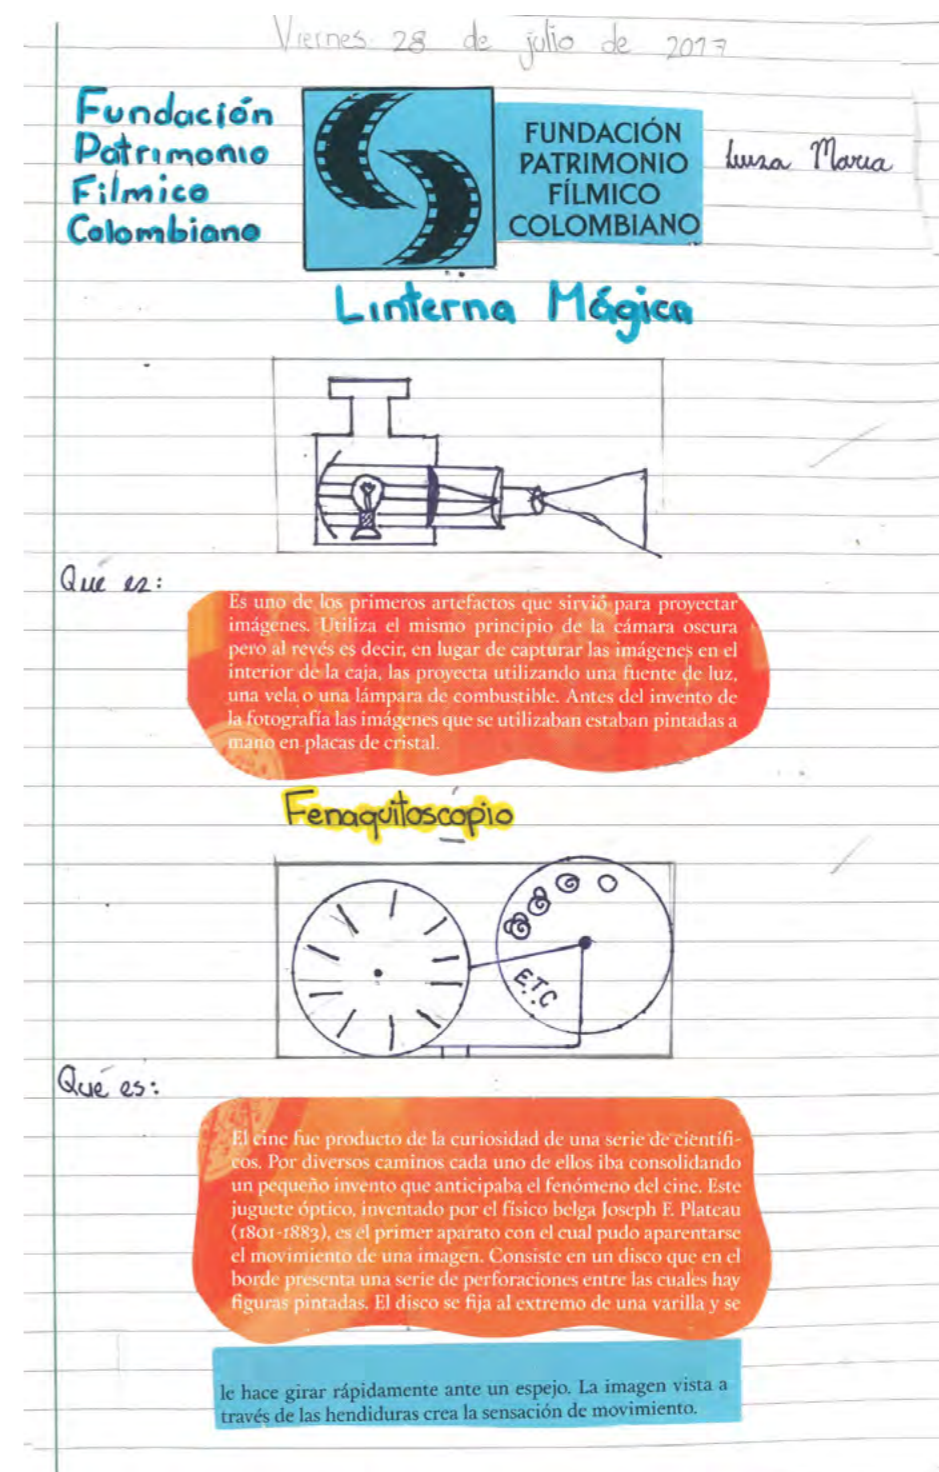 Viernes 28 de julio de 2017
Fundación
Patrimonio
Fílmico
Colombiano
FUNDACIÓN
PATRIMONIO
FÍLMICO
COLOMBIANO
Luisa Maria
Linterna Mágica
Qué es:
Es uno de los primeros artefactos que sirvió para proyectar
imágenes. Utiliza el mismo principio de la cámara oscura
pero al revés es decir, en lugar de capturar las imágenes en el
interior de la caja, las proyecta utilizando una fuente de luz,
una vela o una lámpara de combustible. Antes del invento de
la fotografía las imágenes que se utilizaban estaban pintadas a
mano en placas de cristal.
Fenaquitoscópio
E.T.C
Qué es:
El cine fue producto de la curiosidad de una serie de científi-
cos. Por diversos caminos cada uno de ellos iba consolidando
un pequeño invento que anticipaba el fenómeno del cine. Este
juguete óptico, inventado por el físico belga Joseph F. Plateau
(1801-1883), es el primer aparato con el cual pudo aparentarse
el movimiento de una imagen. Consiste en un disco que en el
borde presenta una serie de perforaciones entre las cuales hay
figuras pintadas. El disco se fija al extremo de una varilla y se
le hace girar rápidamente ante un espejo. La imagen vista a
través de las hendiduras crea la sensación de movimiento.